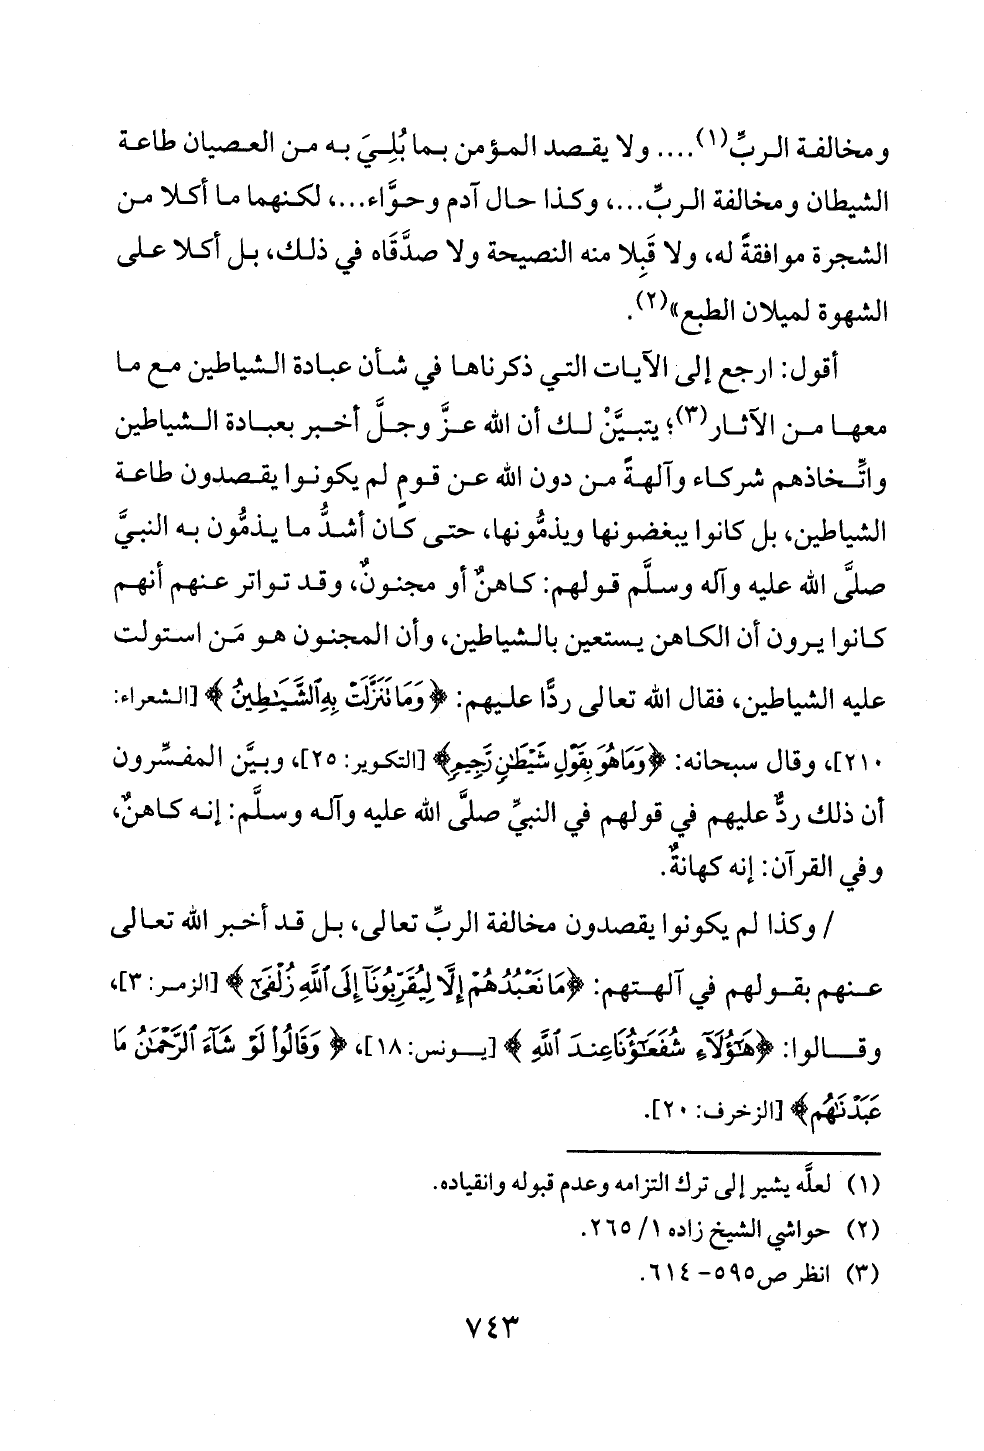 ومخالفة الربِّ(١).... ولا يقصد المؤمن بما بُلِيَ به من العصيان طاعة
الشيطان ومخالفة الربِّ...، وكذا حال آدم وحوَّاء...، لكنهما ما أكلا من
الشجرة موافقةً له، ولا قَبِلا منه النصيحة ولا صدَّقَاه في ذلك، بل أكلا على
الشهوة لميلان الطبع»(٢).
أقول: ارجع إلى الآيات التي ذكرناها في شأن عبادة الشياطين مع ما
معها من الآثار(٣)؛ يتبيَّنْ لك أن الله عزَّ وجلَّ أخبر بعبادة الشياطين
واتِّخاذهم شركاء وآلهةً من دون الله عن قومٍ لم يكونوا يقصدون طاعة
الشياطين، بل كانوا يبغضونها ويذمُّونها، حتى كان أشدُّ ما يذمُّون به النبيَّ
صلَّى الله عليه وآله وسلَّم قولهم: كاهنٌ أو مجنونٌ، وقد تواتر عنهم أنهم
كانوا يرون أن الكاهن يستعين بالشياطين، وأن المجنون هو مَن استولت
عليه الشياطين، فقال الله تعالى ردًّا عليهم: ﴿وَمَا تَنَزَّلَتْ بِهِ ٱلشَّيَٰطِينُ﴾ [الشعراء:
٢١٠]، وقال سبحانه: ﴿وَمَا هُوَ بِقَوْلِ شَيْطَٰنٍ رَّجِيمٍ﴾ [التكوير: ٢٥]، وبيَّن المفسِّرون
أن ذلك ردٌّ عليهم في قولهم في النبيِّ صلَّى الله عليه وآله وسلَّم: إنه كاهنٌ،
وفي القرآن: إنه كهانةٌ.
/ وكذا لم يكونوا يقصدون مخالفة الربِّ تعالى، بل قد أخبر الله تعالى
عنهم بقولهم في آلهتهم: ﴿مَا نَعْبُدُهُمْ إِلَّا لِيُقَرِّبُونَآ إِلَى ٱللَّهِ زُلْفَىٰٓ﴾ [الزمر: ٣]،
وقالوا: ﴿هَٰٓؤُلَآءِ شُفَعَٰٓؤُنَا عِندَ ٱللَّهِ﴾ [يونس: ١٨]، ﴿وَقَالُوا۟ لَوْ شَآءَ ٱلرَّحْمَٰنُ مَا
عَبَدْنَٰهُم﴾ [الزخرف: ٢٠].
(١) لعلَّه يشير إلى ترك التزامه وعدم قبوله وانقياده.
(٢) حواشي الشيخ زاده ١/ ٢٦٥.
(٣) انظر ص٥٩٥- ٦١٤.
٧٤٣